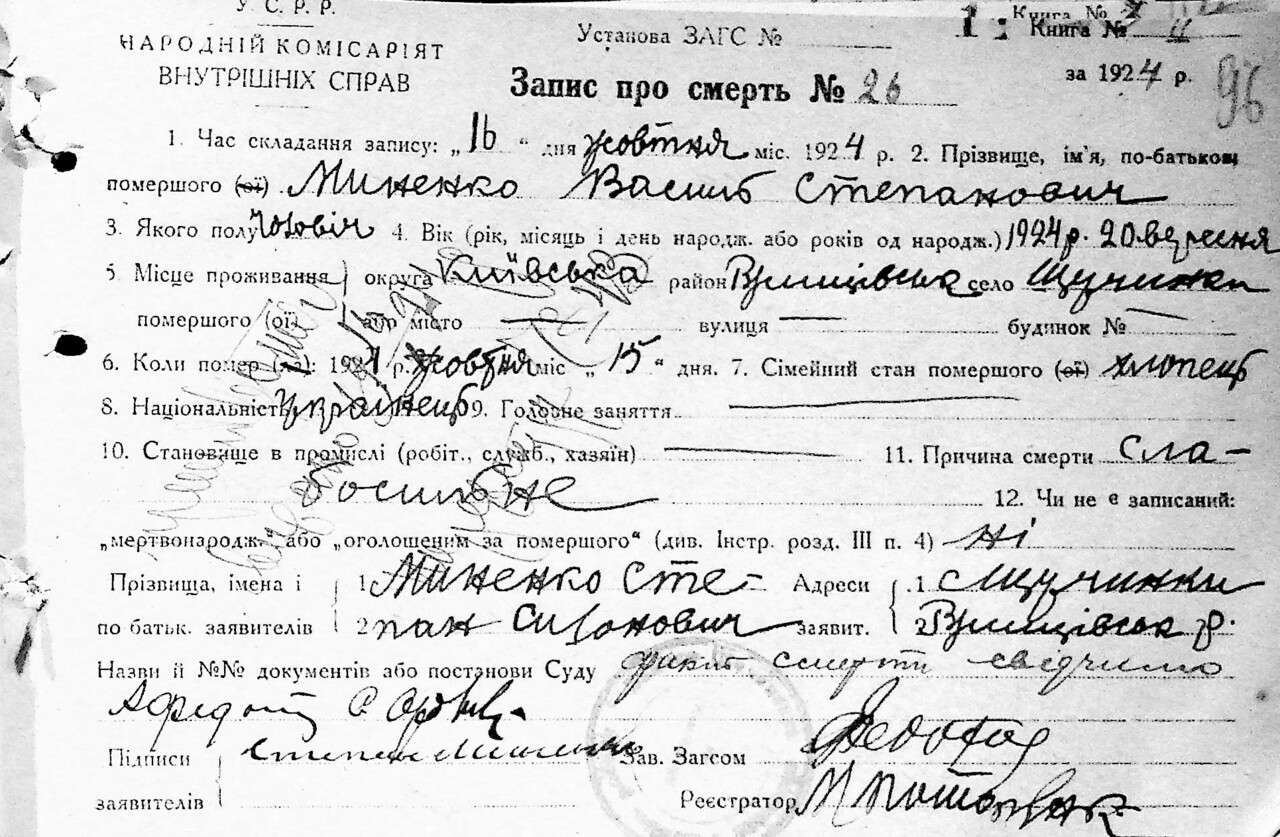 У. С. Р. Р.
НАРОДНІЙ КОМІСАРІЯТ
ВНУТРІШНІХ СПРАВ
Установа ЗАГС №
Книга №
1: Книга № 4
Запис про смерть № 26
за 1924 р.
96
1. Час складання запису: „16“ дня жовтня міс. 1924 р. 2. Прізвище, ім'я, по-батькові
помершого (ої) Миненко Василь Степанович
3. Якого полу Чоловіч 4. Вік (рік, місяць і день народж. або років од народж.) 1924 р. 20 вересня
5. Місце проживання округа Київська район село Щучинки
помершого (ої) або місто — вулиця — будинок № —
6. Коли помер (ла): 1924 р. жовтня міс „15“ дня. 7. Сімейний стан помершого (ої) хлопець
8. Національність Українець 9. Головне заняття —
10. Становище в промислі (робіт., служб., хазяїн) — 11. Причина смерти Сла-
босильне 12. Чи не є записаний:
„мертвонародж.“ або „оголошеним за помершого“ (див. Інстр. розд. III п. 4) Ні
Прізвища, імена і 1 Миненко Сте- Адреси 1 Щучинки
по батьк. заявителів 2 пан заявит. 2 р.
Назви й №№ документів або постанови Суду факт смерти свідчимо
Підписи Степан Миненко Зав. Загсом
заявителів Реєстратор